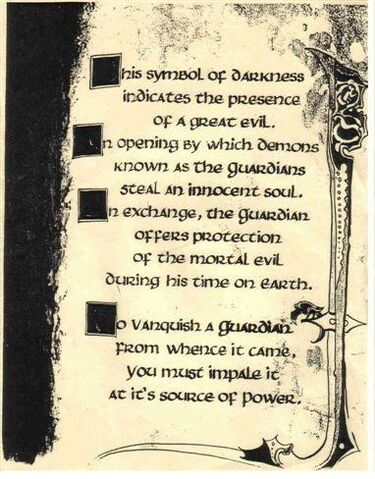 his symbol of darkness
indicates the presence
of a great evil.
n opening by which demons
known as the Guardians
steal an innocent soul.
n exchange, the Guardian
offers protection
of the mortal evil
during his time on earth.
o vanquish a Guardian
from whence it came,
you must impale it
at it's source of power.